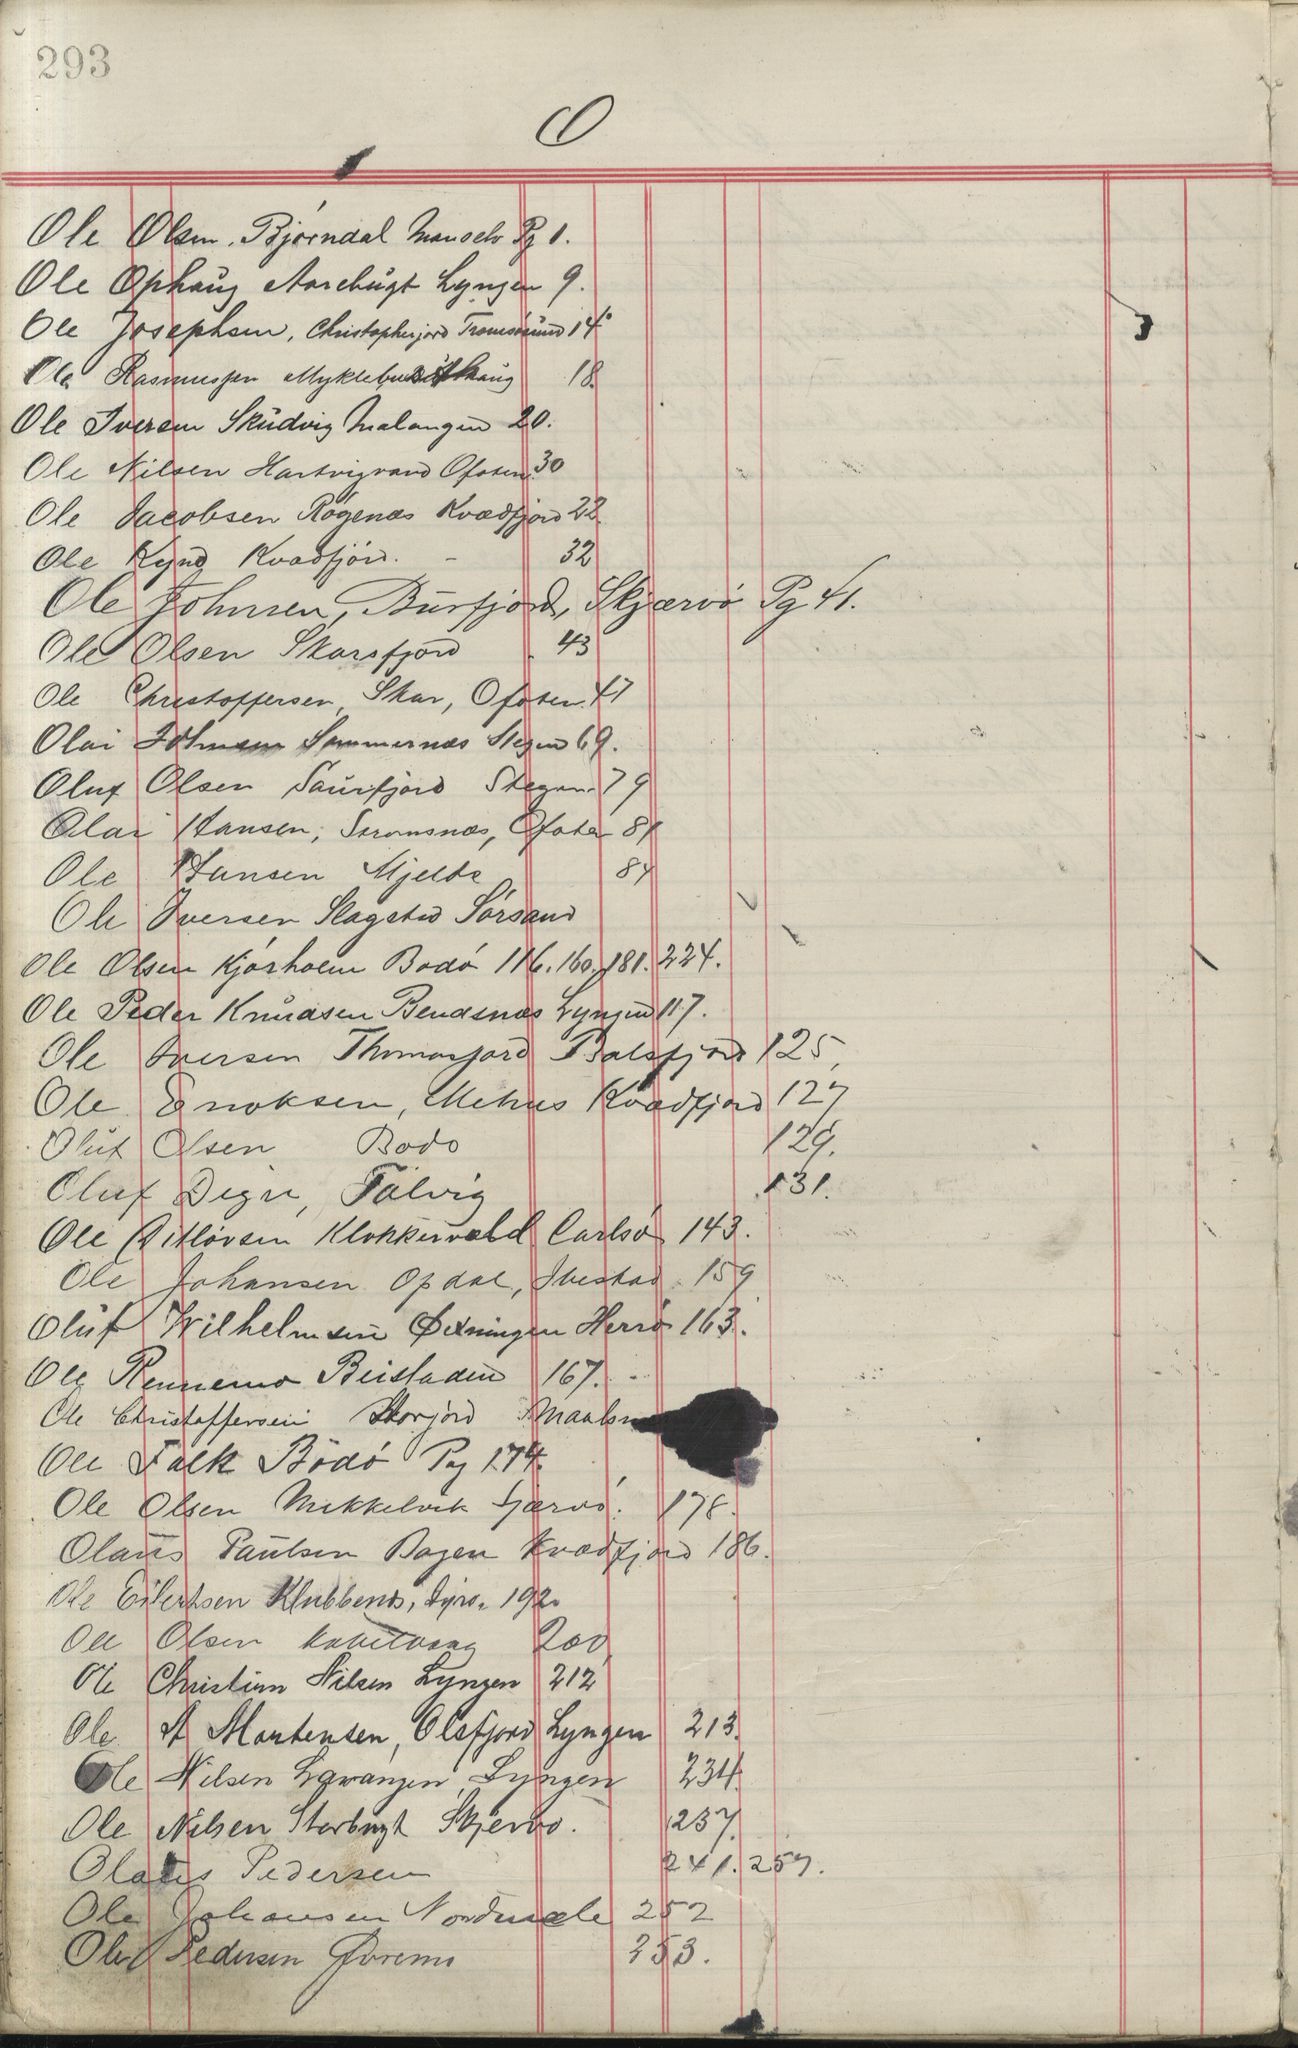 293
O
Ole Olsen. Bjørndal Manselv Pg 1.
Ole Ophaug Aarebugt Lyngen 9.
Ole Josephsen, Christopherjord Tromsøsund 14
Ole Rasmussen Myklebust 18.
Ole Iversen Skudvig Malangen 20.
Ole Nilsen Hartvigvand Ofoten 30
Ole Jacobsen Røgenæs Kvædfjord 22
Ole Kynd Kvædfjörd. - 32
Ole Johnsen, Burfjord, Skjærvö Pg 41.
Ole Olsen Skarsfjord 43
Ole Christoffersen, Skar, Ofoten. 47
Olai Johnsen Sommernæs Stegen 69.
Oluf Olsen Saurfjord Stegen 79
Olai Hansen, Strømsnæs, Ofoten 81
Ole Hansen Mjelde 84
Ole Iversen Slagstad Sörsand
Ole Olsen Kjórholm Bodó 116. 160. 181. 224.
Ole Peder Knudsen Bendsnæs Lyngen 117.
Ole Iversen Thomasjord Balsfjord 125,
Ole Enoksen, Mehus Kvædfjord 127
Oluf Olsen Bodo 129.
Oluf Digre, Talvig 131.
Ole Ditlovsen Klokkervold Carlsö 143.
Ole Johansen Opdal, Ibestad 159
Oluf Wilhelmsen Øksningen Herrö 163.
Ole Rennemo Beistaden 167.
Ole Christoffersen Storjord
Ole Falk Bödó Pag 174.
Ole Olsen Mikkelvik 178.
Olaus Paulsen Bogen Kvædfjord 186.
Ole Eilertsen Klubbenæs, Dyrö. 192
Ole Olsen Kabelvaag 200
Ole Christian Nilsen Lyngen 212
Ole A Mortensen, Olsfjord Lyngen 213.
Ole Nilsen Lavangen, Lyngen 234.
Ole Nilsen Storbugt Skjervö. 237.
Olaus Pedersen 241. 257.
Ole Johansen Nordmæle 252
Ole Pedersen Øvremo 253.